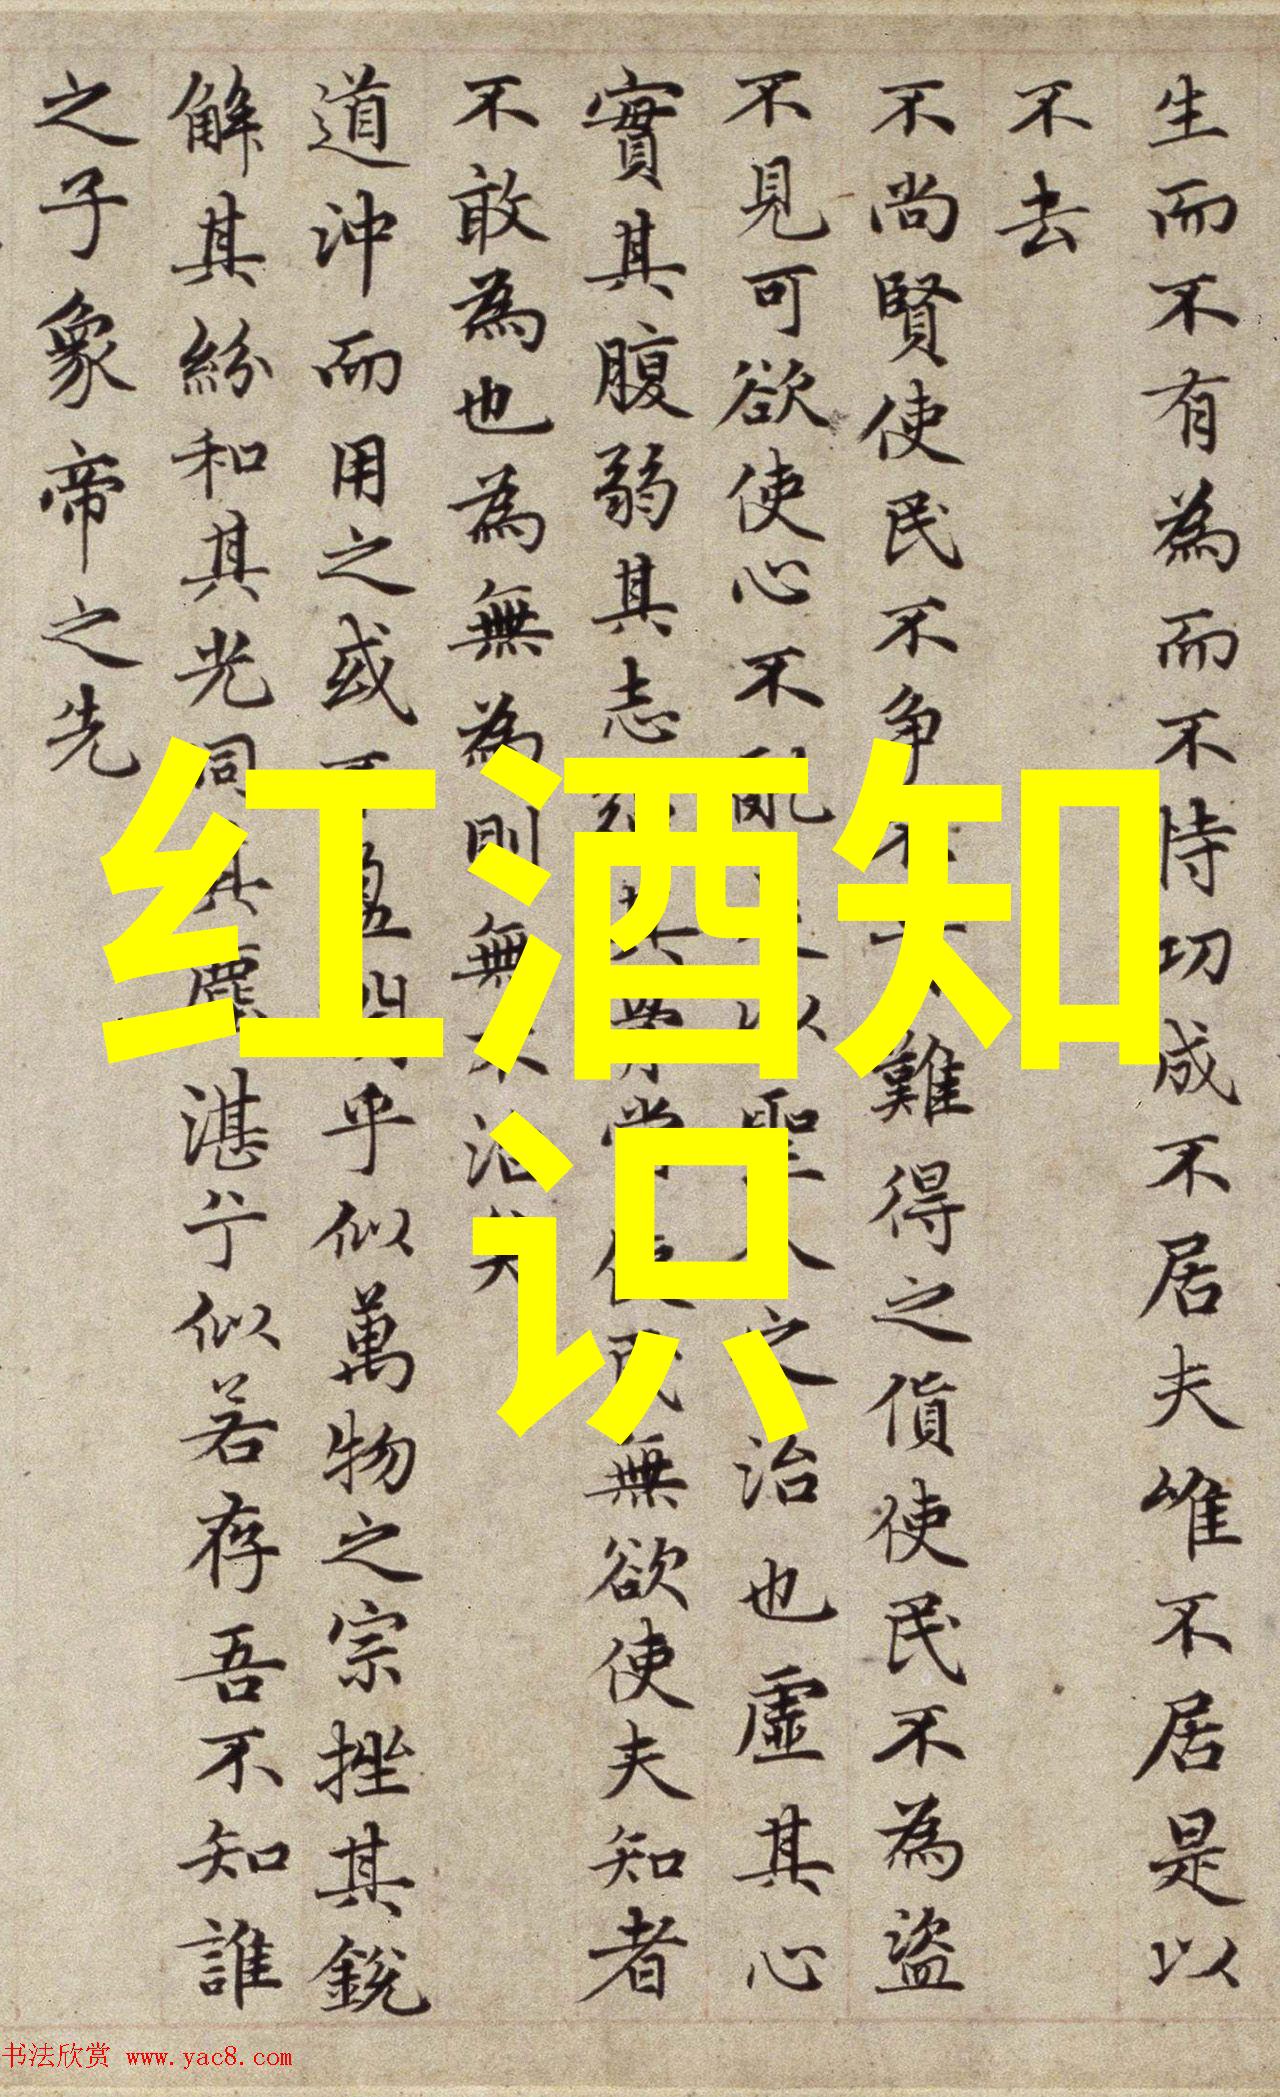 生而不有為而不恃功成不居夫唯不居是以
不去
不尚賢使民不争不難得之貨使民不為盜
不見可欲使心不亂以聖人之治也虛其心
實其腹弱其志其骨常使民無欲使夫知者
不敢為也為無為則無不治矣
道沖而用之或不盈乎似萬物之宗挫其銳
解其紛和其光同其塵湛兮似若存吾不知誰
之子象帝之先
红酒知
识
书法欣赏 www.yac8.com